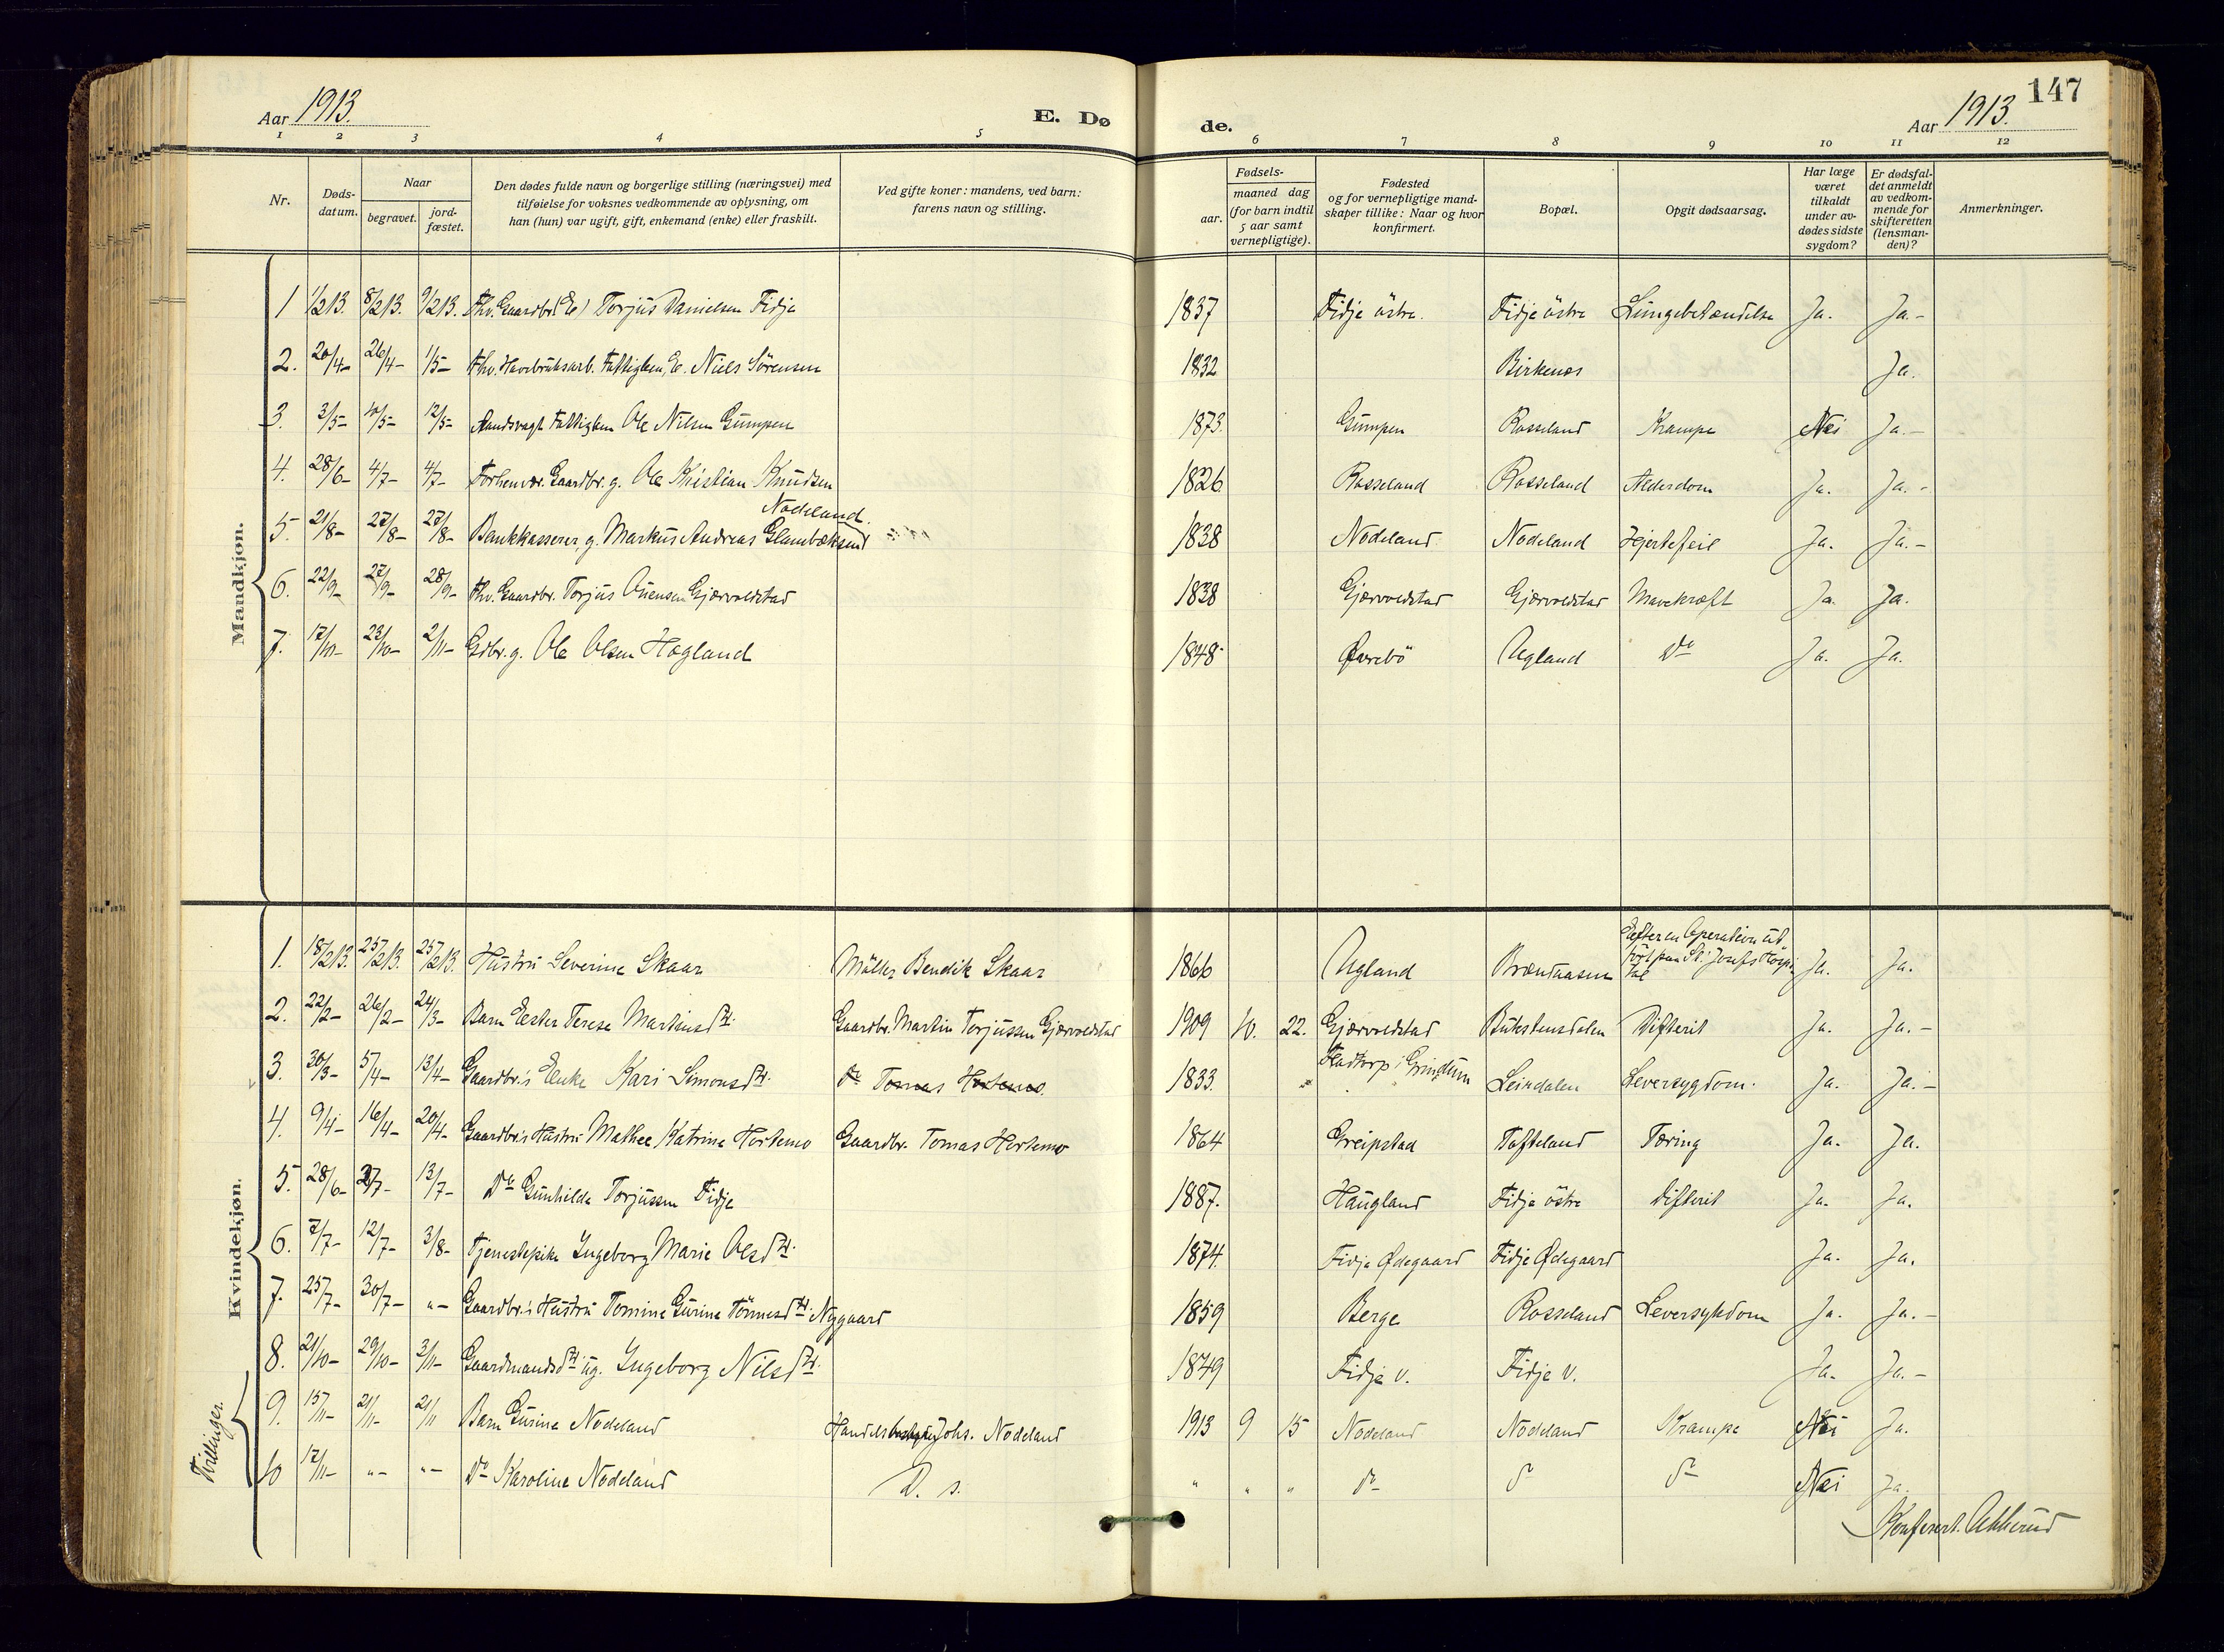 147
Aar 1913.
E. Dø
de.
Aar 1913.
1 2 3 4 5 6 7 8 9 10 11 12
Nr.
Døds-
datum.
Naar
begravet.
jord-
fæstet.
Den dødes fulde navn og borgerlige stilling (næringsvei) med
tilføielse for voksnes vedkommende av oplysning, om
han (hun) var ugift, gift, enkemand (enke) eller fraskilt.
Ved gifte koner: mandens, ved barn:
farens navn og stilling.
Fødsels-
aar.
maaned dag
(for barn indtil
5 aar samt
vernepligtige).
Fødested
og for vernepligtige mand-
skaper tillike: Naar og hvor
konfirmert.
Bopæl.
Opgit dødsaarsag.
Har læge
været
tilkaldt
under av-
dødes sidste
sygdom?
Er dødsfal-
det anmeldt
av vedkom-
mende for
skifteretten
(lensman-
den)?
Anmerkninger.
Mandkjøn.
1 1/2 13. 8/2 13. 9/2 13. Fhv. Gaardbr. (E) Torjus Danielsen Fidje 1837 Fidje östre. Fidje östre Lungebetændelse Ja. Ja.-
2. 20/4- 26/4- 1/5- Fhv. Fattiglem, E. Niels Sörensen 1832 Birkenes Ja.
3. 3/5- 10/5- 12/5- Aandsvagt Fattiglem Ole Nilsen Gumpen 1873. Gumpen Rosseland Krampe Nei Ja.-
4. 28/6- 4/7- 4/7- Forhenvær. Gaardbr. g. Ole Kristian Knudsen 1826. Rosseland Rosseland Alderdom Ja. Ja.-
Nodeland.
5. 21/8- 27/8- 27/8- Bankkasserer, g. Markus Andreas Glambæksund 1838 Nodeland Nodeland Hjertefeil Ja. Ja.-
6. 22/9- 27/9- 28/9- Fhv. Gaardbr. Torjus Auensen Gjærvoldstad 1838 Gjærvoldstad Gjærvoldstad Mavekræft Ja. Ja.
7. 17/10- 23/10- 2/11- Gdbr. g. Ole Olsen Hagland 1848- Øvrebö Ugland Do Ja. Ja.
Kvindekjøn.
1. 18/2 13. 25/2 13. 25/2 13. Hustru Severine Skaar Möller Bendik Skaar 1866 Ugland Brændaasen Efter en Operation ud-
fört paa St. Josefs Hospi-
tal Ja. Ja.
2. 22/2- 26/2- 24/3- Barn Ester Terese Martinsdtr. Gaardbr. Martin Torjussen Gjærvoldstad 1909 10. 22. Gjærvoldstad Bukstensdalen Difterit Ja. Ja.-
3. 30/3- 5/4- 13/4- Gaardbr.s Enke Kari Simonsdtr. Do Tomas Hortemo. 1833. Fladtorp i Grindum Leirdalen Leversygdom. Ja. Ja.-
4. 9/4- 16/4- 20/4- Gaardbr.s Hustru Mathee Katrine Hortemo Gaardbr. Tomas Hortemo 1864 Greipstad Tofteland Tæring Ja. Ja.
5. 28/6- 3/7- 13/7- Do Gunhilde Torjussen Fidje 1887. Haugland Fidje östre Difterit Ja. Ja.
6. 7/7- 12/7- 3/8- Tjenestepike Ingeborg Marie Olsdtr. 1874. Fidje Ødegaard Fidje Ødegaard Ja. Ja.
7. 25/7- 30/7- "- Gaardbr.s Hustru Tomine Gurine Tönnesdtr. Nygaard 1859 Berge Rosseland Leversykdom Ja. Ja.-
8. 21/10- 29/10- 3/11- Gaardmandsdtr. ug. Ingeborg Nilsdtr. 1849 Fidje v. Fidje v. Ja. Ja.-
Tvillinger.
9. 15/11- 21/11- 21/11 Barn Gurine Nodeland Johs. Nodeland 1913 9 15 Nodeland Nodeland Krampe Nei Ja.
10 17/11- "- "- Do Karoline Nodeland D. s. " " " do- do do- Nei Ja.
Konferert. Akkerud